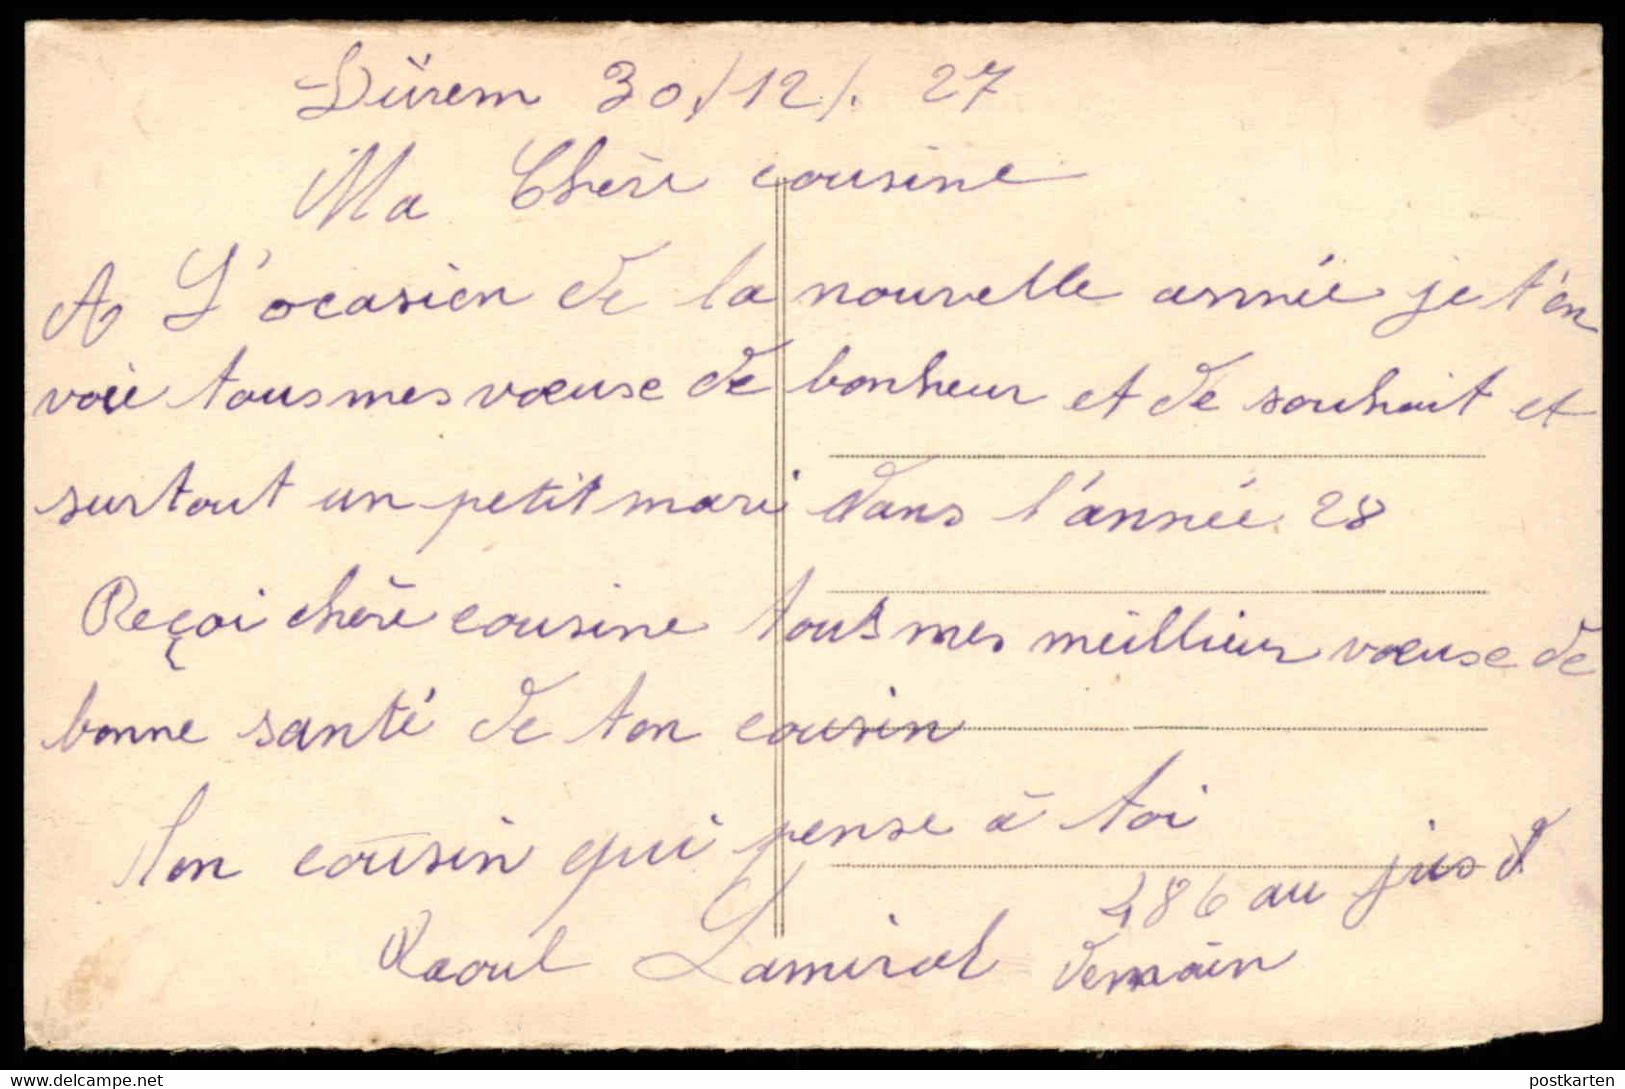 Dürem 30./12/. 27
Ma Chère cousine
A L'ocasion de la nouvelle année je t'en
voie tous mes vœuse de bonheur et de souhait et
surtout un petit mari dans l'année 28
Reçoi chère cousine tous mes meillieur vœuse de
bonne santé de ton cousin
Ton cousin qui pense à toi
Raoul Lamiral
186 au jus d
demain
postkarten
postkarten